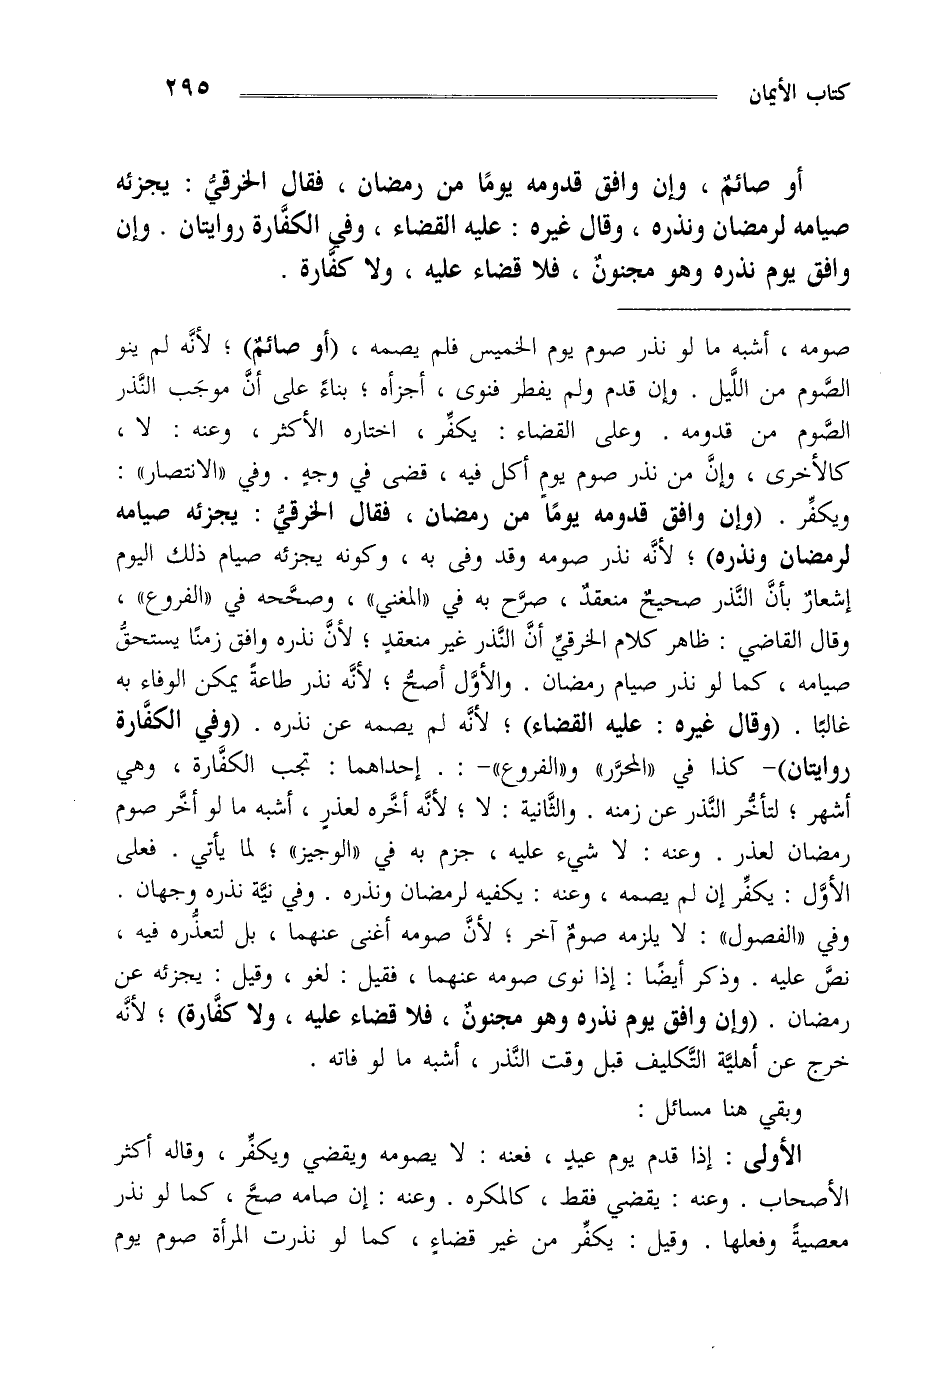 كتاب الأيمان ٢٩٥
أو صائمٌ ، وإن وافق قدومه يومًا من رمضان ، فقال الخرقيُّ : يجزئه
صيامه لرمضان ونذره ، وقال غيره : عليه القضاء ، وفي الكفَّارة روايتان . وإن
وافق يوم نذره وهو مجنونٌ ، فلا قضاء عليه ، ولا كفَّارة .
صومه ، أشبه ما لو نذر صوم يوم الخميس فلم يصمه ، (أو صائمٌ) ؛ لأنَّه لم ينو
الصَّوم من اللَّيل . وإن قدم ولم يفطر فنوى ، أجزأه ؛ بناءً على أنَّ موجَب النَّذر
الصَّوم من قدومه . وعلى القضاء : يكفِّر ، اختاره الأكثر ، وعنه : لا ،
كالأخرى ، وإنَّ من نذر صوم يومٍ أكل فيه ، قضى في وجهٍ . وفي «الانتصار» :
ويكفِّر . (وإن وافق قدومه يومًا من رمضان ، فقال الخرقيُّ : يجزئه صيامه
لرمضان ونذره) ؛ لأنَّه نذر صومه وقد وفى به ، وكونه يجزئه صيام ذلك اليوم
إشعارٌ بأنَّ النَّذر صحيحٌ منعقدٌ ، صرَّح به في «المغني» ، وصحَّحه في «الفروع» ،
وقال القاضي : ظاهر كلام الخرقيِّ أنَّ النَّذر غير منعقدٍ ؛ لأنَّ نذره وافق زمنًا يستحقُّ
صيامه ، كما لو نذر صيام رمضان . والأوَّل أصحُّ ؛ لأنَّه نذر طاعةً يمكن الوفاء به
غالبًا . (وقال غيره : عليه القضاء) ؛ لأنَّه لم يصمه عن نذره . (وفي الكفَّارة
روايتان)– كذا في «المحرَّر» و«الفروع»– : . إحداهما : تجب الكفَّارة ، وهي
أشهر ؛ لتأخُّر النَّذر عن زمنه . والثَّانية : لا ؛ لأنَّه أخَّره لعذرٍ ، أشبه ما لو أخَّر صوم
رمضان لعذر . وعنه : لا شيء عليه ، جزم به في «الوجيز» ؛ لما يأتي . فعلى
الأوَّل : يكفِّر إن لم يصمه ، وعنه : يكفيه لرمضان ونذره . وفي نيَّة نذره وجهان .
وفي «الفصول» : لا يلزمه صومٌ آخر ؛ لأنَّ صومه أغنى عنهما ، بل لتعذُّره فيه ،
نصَّ عليه . وذكر أيضًا : إذا نوى صومه عنهما ، فقيل : لغو ، وقيل : يجزئه عن
رمضان . (وإن وافق يوم نذره وهو مجنونٌ ، فلا قضاء عليه ، ولا كفَّارة) ؛ لأنَّه
خرج عن أهليَّة التَّكليف قبل وقت النَّذر ، أشبه ما لو فاته .
وبقي هنا مسائل :
الأولى : إذا قدم يوم عيدٍ ، فعنه : لا يصومه ويقضي ويكفِّر ، وقاله أكثر
الأصحاب . وعنه : يقضي فقط ، كالمكره . وعنه : إن صامه صحَّ ، كما لو نذر
معصيةً وفعلها . وقيل : يكفِّر من غير قضاءٍ ، كما لو نذرت المرأة صوم يوم